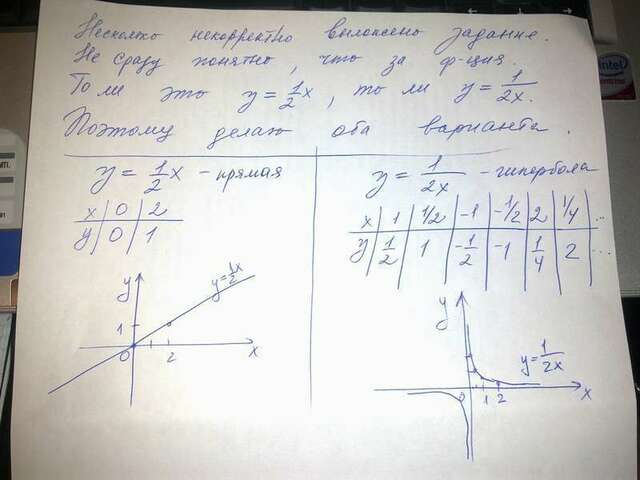 Несколько некорректно выложено задание.
Не сразу понятно, что за ф-ция.
То ли это y = 1/2 x, то ли y = 1/2x.
Поэтому делаю оба варианта.
y = 1/2 x - прямая
x | 0 | 2
y | 0 | 1
y
y = 1/2 x
1
0 2 x
y = 1/2x - гипербола
x | 1 | 1/2 | -1 | -1/2 | 2 | 1/4 | ...
y | 1/2 | 1 | -1/2 | -1 | 1/4 | 2 | ...
y
y = 1/2x
0 1 2 x
intel